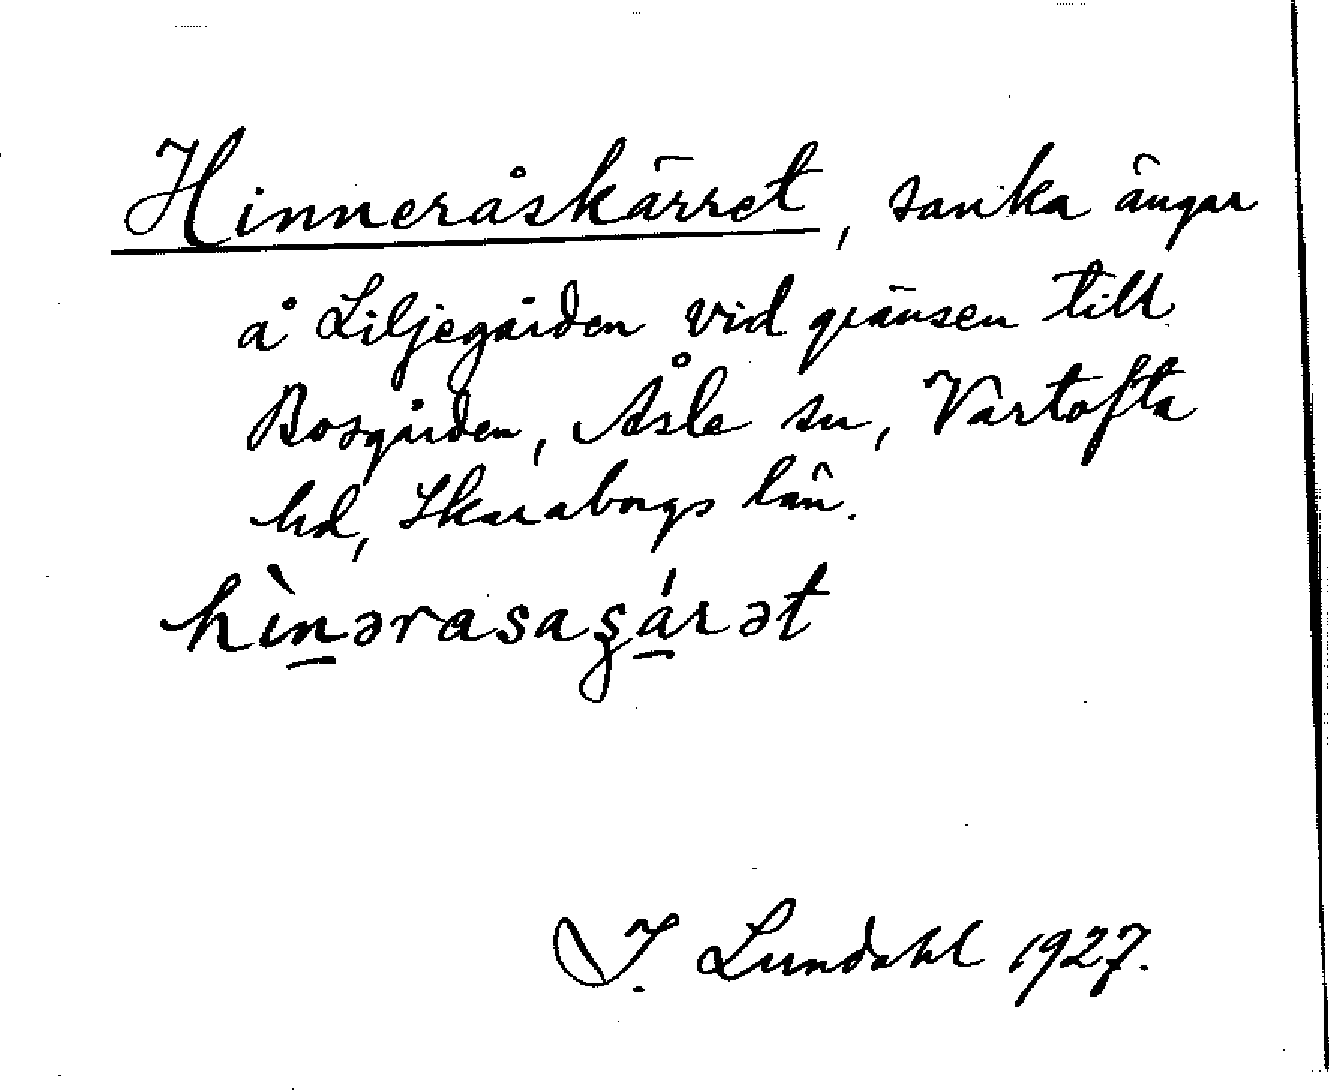 Hinneråskärret, sanka ängar
å Liljegården vid gränsen till
Bosgården, Åsle sn, Vartofta
hd, Skaraborgs län.
hìn̲ərasaʂá̲rət
I. Lundahl 1927.